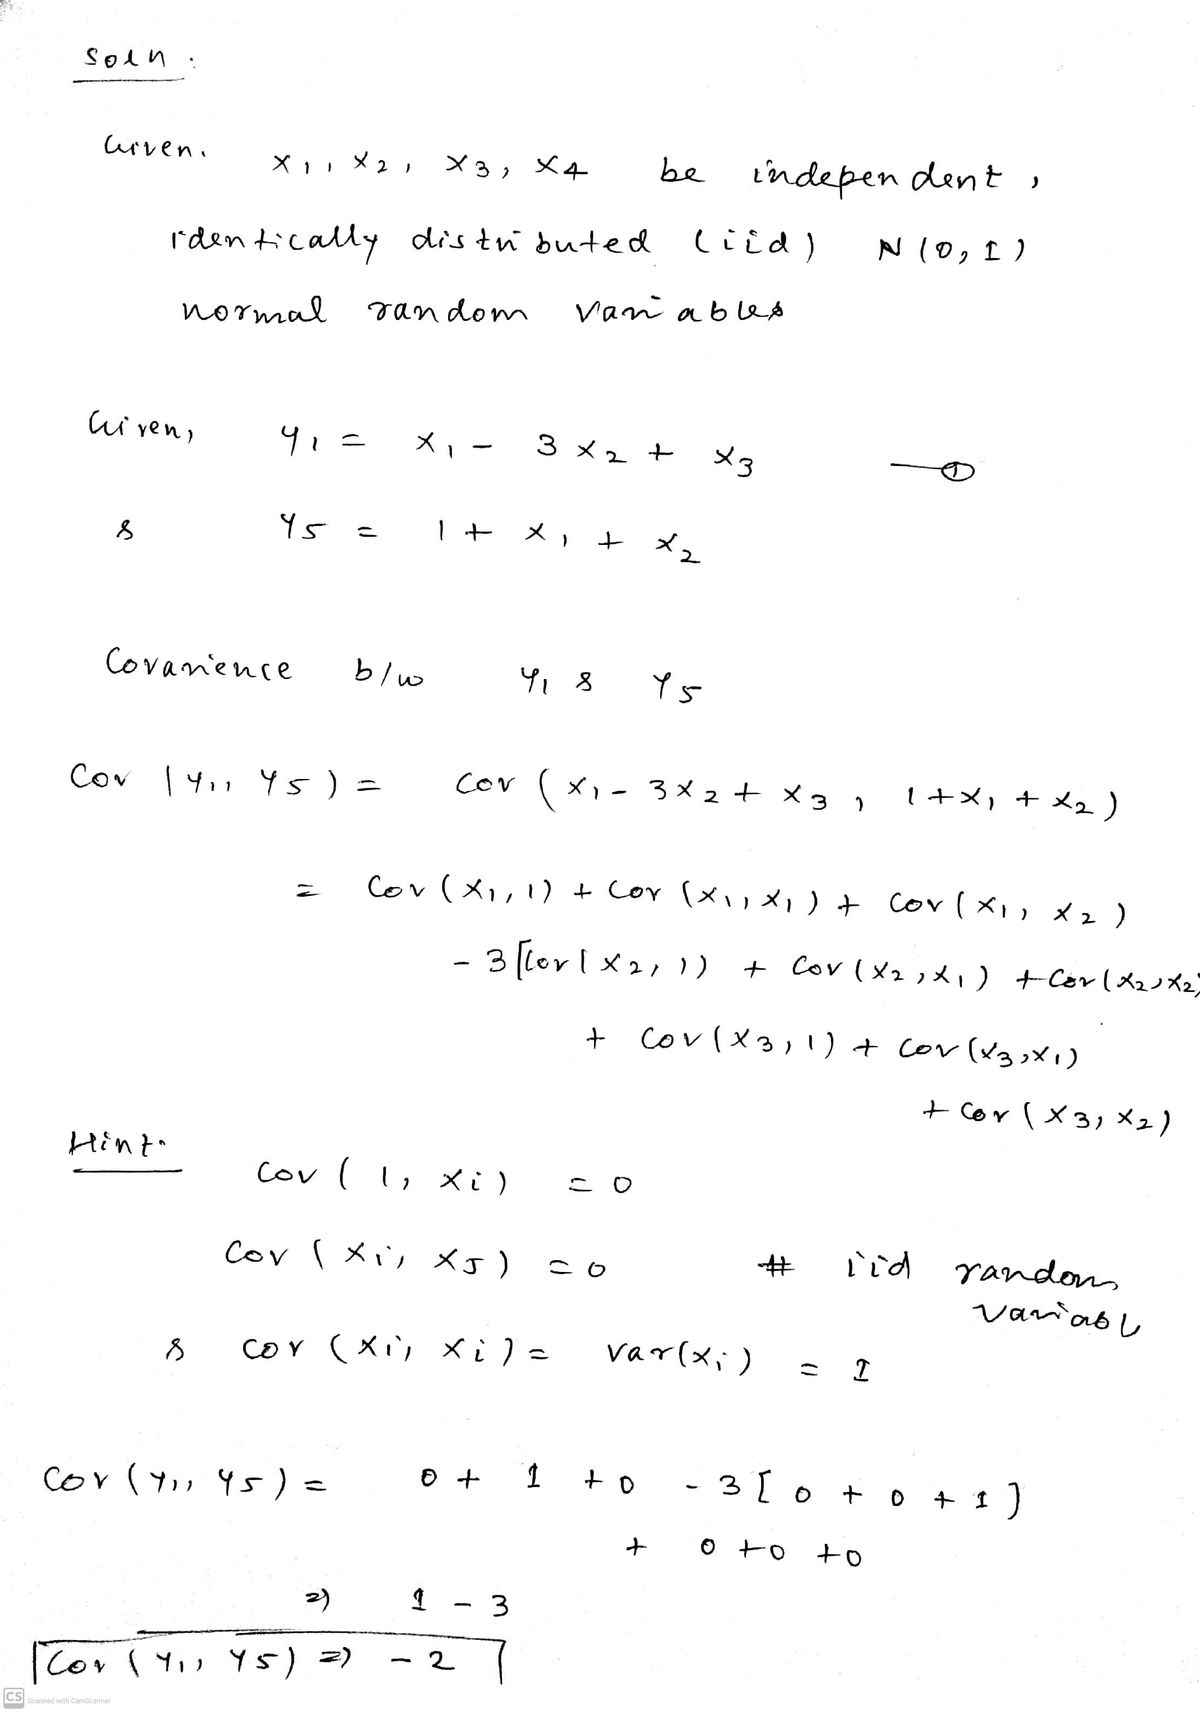 Soln.
Given. X1, X2, X3, X4 be independent,
identically distributed (iid) N(0,1)
normal random variables
Given, Y1 = X1 - 3X2 + X3 —①
& Y5 = 1 + X1 + X2
Covarience b/w Y1 & Y5
Cov (Y1, Y5) = Cov (X1 - 3X2 + X3, 1+X1 + X2)
= Cov (X1, 1) + Cov (X1, X1) + Cov (X1, X2)
- 3 [Cov (X2, 1) + Cov (X2, X1) + Cov (X2, X2)
+ Cov (X3, 1) + Cov (X3, X1)
+ Cov (X3, X2)
Hint.
Cov (1, Xi) = 0
Cov (Xi, XJ) = 0 # iid random
variabl
& Cov (Xi, Xi) = Var(Xi) = 1
Cov (Y1, Y5) = 0 + 1 + 0 - 3 [0 + 0 + 1]
+ 0 + 0 + 0
=) 1 - 3
Cov (Y1, Y5) =) - 2
CS Scanned with CamScanner